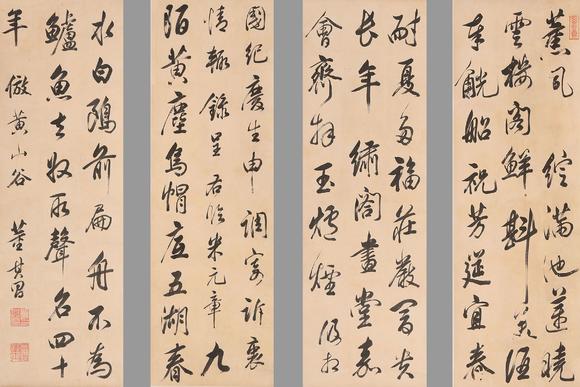 薰風 綻滿池蓮曉
雲樓閣鮮斟美酒
奉觥船祝芳筵宜春
耐夏多福莊嚴富貴
長年 繡閣畫堂嘉
會齊拜玉爐煙 相
國紀慶生申 調寄訴衷
情輙錄呈 右臨米元章 九
陌黃塵烏帽底五湖春
水白鷗前扁舟不為
鱸魚去收取聲名四十
年 倣黃山谷 董其昌